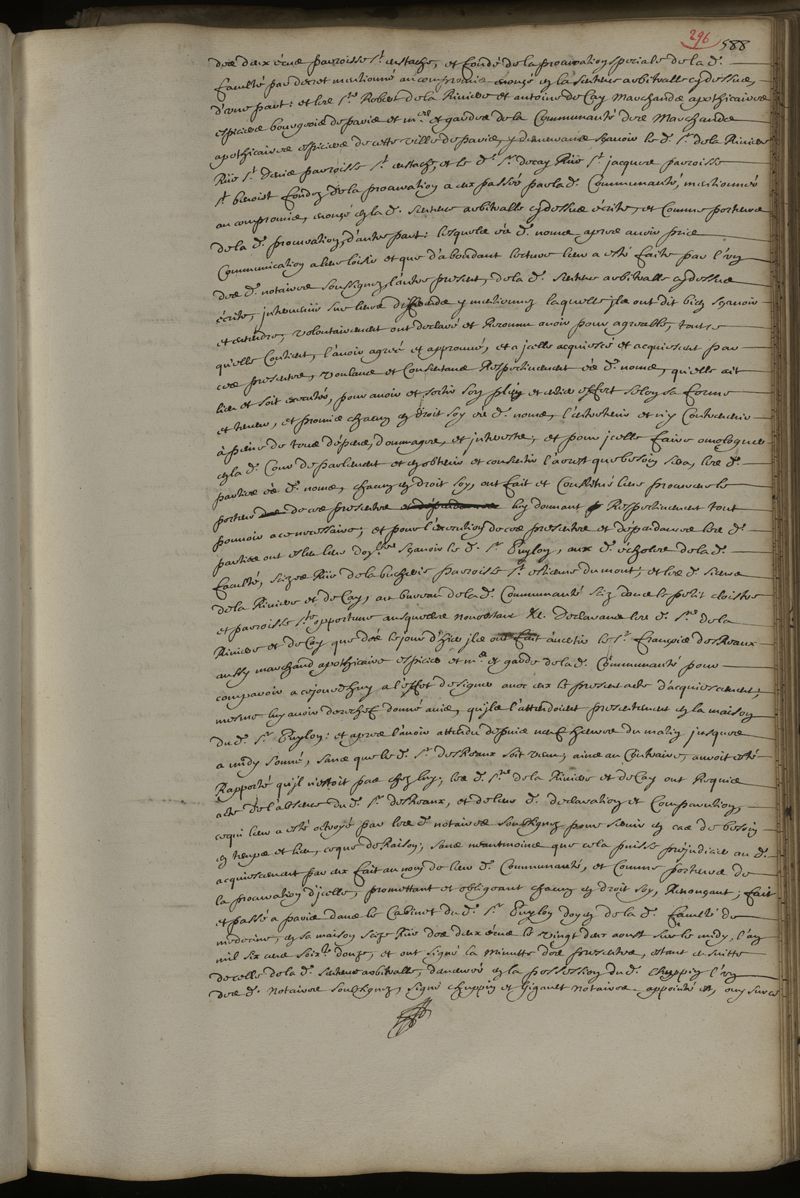 296 588
des deux écus parroisse St. eustache, et fondé de la procuration speciale de la d.
faculté par decret mentionné au compromis enoncé en la sentence arbitralle cy dessus,
d'une part: et les Srs. Robert de la Riviere et antoine de Cay Marchands apothicaires
espiciers bourgeois de paris et mres. et gardes de la Communauté des Marchands
apothicaires espiciers de cette ville de paris, y demeurans sçavoir le d. Sr. de la Riviere
Rüe St. Denis parroisse St. eustache, et le d. Sr. decay Rüe St. jacques parroisse
St. benoist fondez de la procuration a eux passée par la d. Communauté, mentionnée
au compromis, enoncé en la d. sentence arbitralle cy dessus écrite, et Comme porteurs
de la d. procuration, d'autre part: lesquels és d. noms aprés avoir pris
Communication a leur loisir et que d'abondant lecture leur a esté faite par l'un
des d. notaires soussignez, l'autre present, de la d. sentence arbitralle cy dessus
écrite, intervenüe sur leurs differends y mentionnez laquelle ils ont dit bien sçavoir
et entendre, volontairement ont declaré et Reconnu avoir pour agreable, tout ce
qu'elle Contient, l'avoir agreé et approuvé, et a jcelle acquiescé et acquiescent par
ces presentes, voulans et Consentans Respectivement és d. noms, qu'elle ait
lieu et soit executée, pour avoir et sortir son plein et entier effect selon sa forme
et teneur, et promis chacun en droit soy és d. noms, l'entretenir et n'y Contrevenir
à peine de tous dépens, dommages, et interests, et pour jcelle faire omologuer
en la d. Cour de parlement et en obtenir et consentir l'arrest que besoin sera, les d.
parties és d. noms, chacun en droit soy, ont fait et Constitué leur procureur le
porteur de ces presentes luy donnant Respectivement tout
pouvoir a ce necessaire; et pour l'execution des presentes et dépendances les d.
parties ont esleu leur domicile sçavoir le d. Sr. Puylon, aux d. écholes de la d.
faculté, sizes Rüe de la bucherie parroisse St. estienne du mont; et les d. sieurs
de la Riviere et de Cay, au bureau de la d. Communauté siz dans le petit cloistre
et parroisse Ste. opportune ausquels nonobstant &c. Declarans les d. Srs. de la
Riviere et de Cay que dés le jour d'hier ils ont fait avertir le Sr. François desReaux
aussy marchand apothicaire espicier et mre. et garde de la d. Communauté pour
comparoir a cejourd'huy a l'effet de signer avec eux le present acte d'acquiescement;
mesme luy avoir derechef donné avis, qu'ils l'attendoient presentement en la maison
du d. Sr. Puylon: et aprés l'avoir attendu depuis neuf heures du matin jusques
a midy sonné, sans que le d. Sr. desReaux soit venu, ains au Contraire, auroit esté
Rapporté qu'il n'estoit pas chez luy; les d. Srs. de la Riviere et de Cay ont Requis
acte de l'absence du d. Sr. desReaux, et de leur d. declaration et Comparution,
ce qui leur a esté octroyé par les d. notaires soubsignez pour servir en cas de besoin
en temps et lieu, ce que de Raison; sans neantmoins que cela puisse prejudicier au d.
acquiescement par eux fait au nom de leur d. Communauté, et Comme porteurs de
la procuration d'jcelle, promettant et obligeant chacun en droit soy, Renonçant; fait
et passé a paris dans le Cabinet du d. Sr. Puylon doyen de la d. faculté de
medecine, en sa maison size Rüe des deux écus le vingt deux aoust sur le midy, l'an
mil six cens soixte. douze, et ont signé la minutte des presentes, estant en suitte
de celle de la d. sentence arbitralle, demeurée en la possession du d. Chuppin l'un
des d. Notaires soubsignez, signé Chuppin et Gigault Notaires. appointé est, ouy sur ce